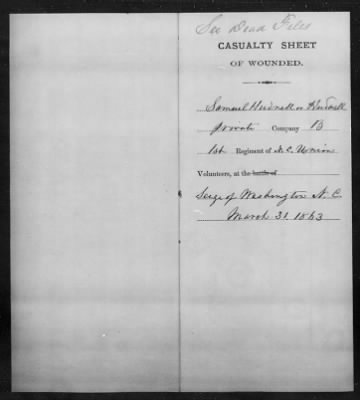 See Dead Files
CASUALTY SHEET
OF WOUNDED.
Samuel Hudnall or
Private Company B
1st Regiment of N.C. Union
Volunteers, at the battle of
Seige of Washington N.C.
March 31. 1863